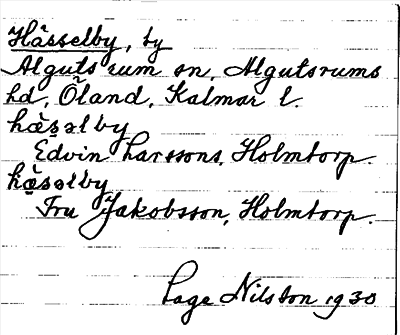 Hässelby, by
Algutsrum sn, Algutsrums
hd, Öland, Kalmar l.
hæ̀səlby
Edvin Larssons, Holmtorp.
hæ̀səlby
Fru Jakobsson, Holmtorp.
Lage Nilsson 1930